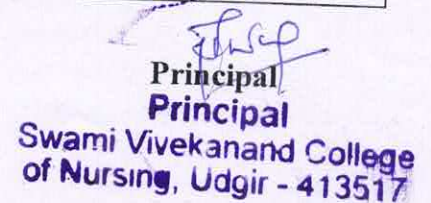 Principal
Principal
Swami Vivekanand College
of Nursing, Udgir - 413517